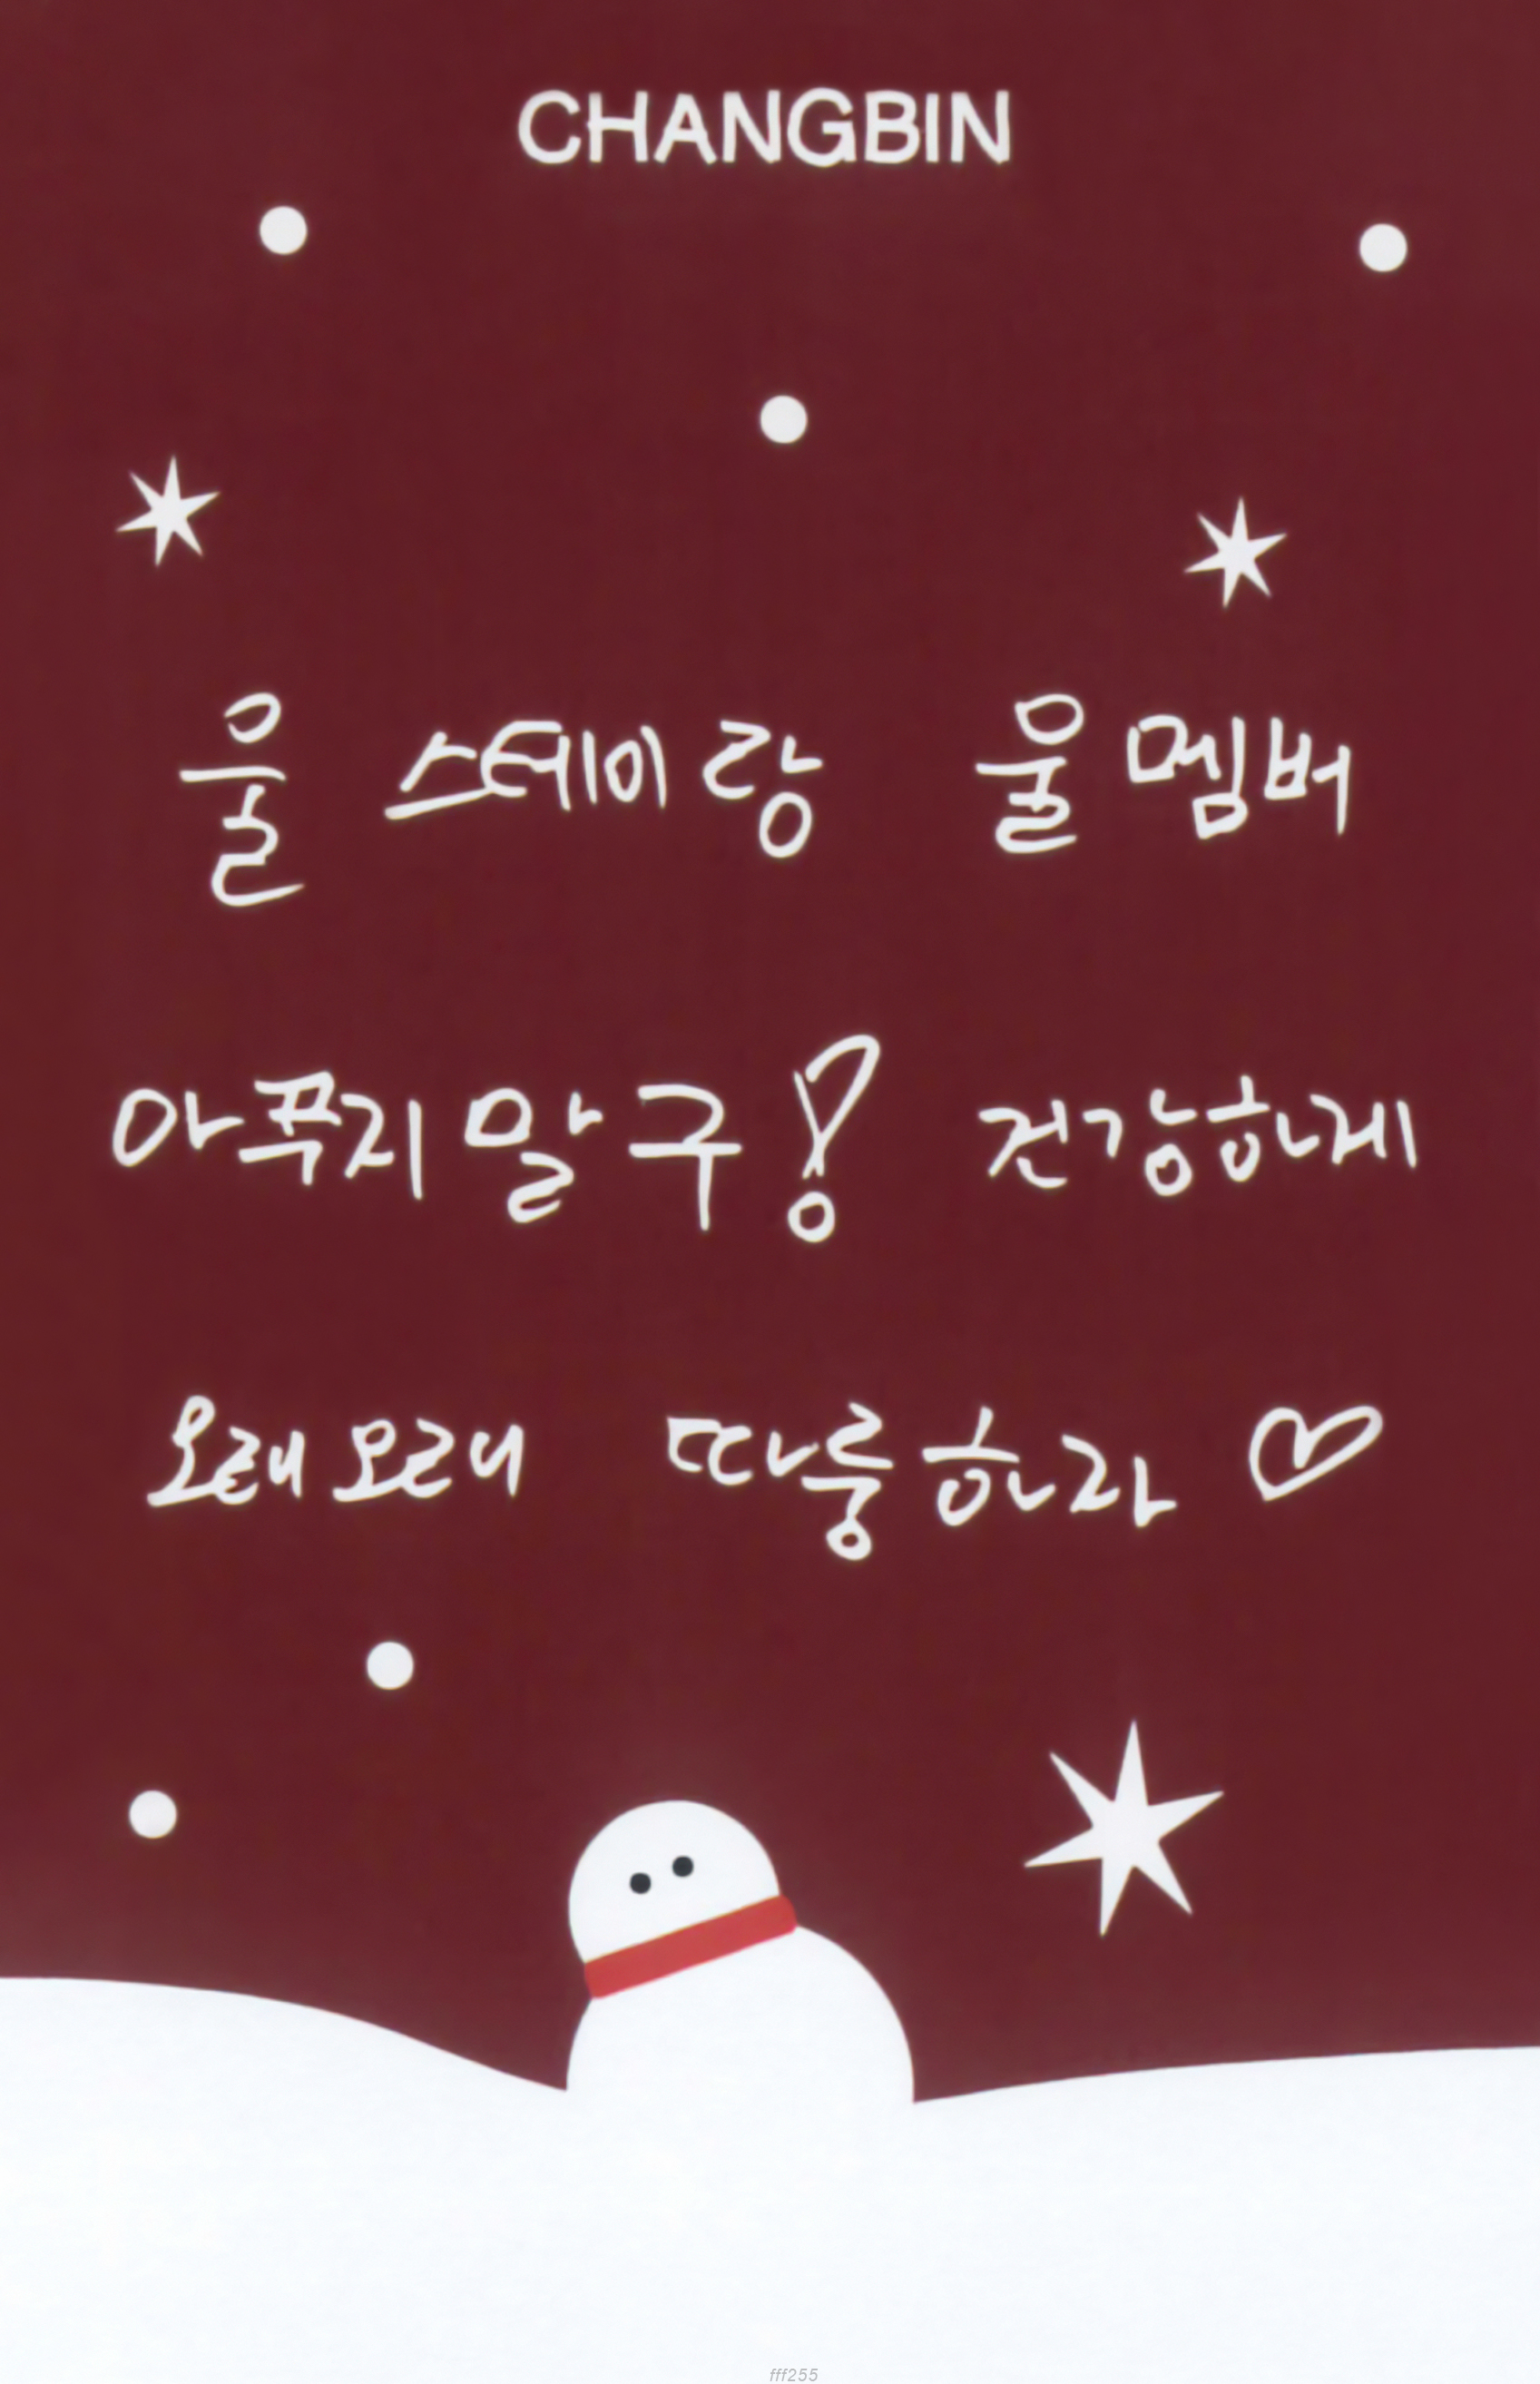 CHANGBIN
울 스테이랑 울 멤버
아푸지 말구! 건강하게
오래오래 따릉하라 ♡
fff255